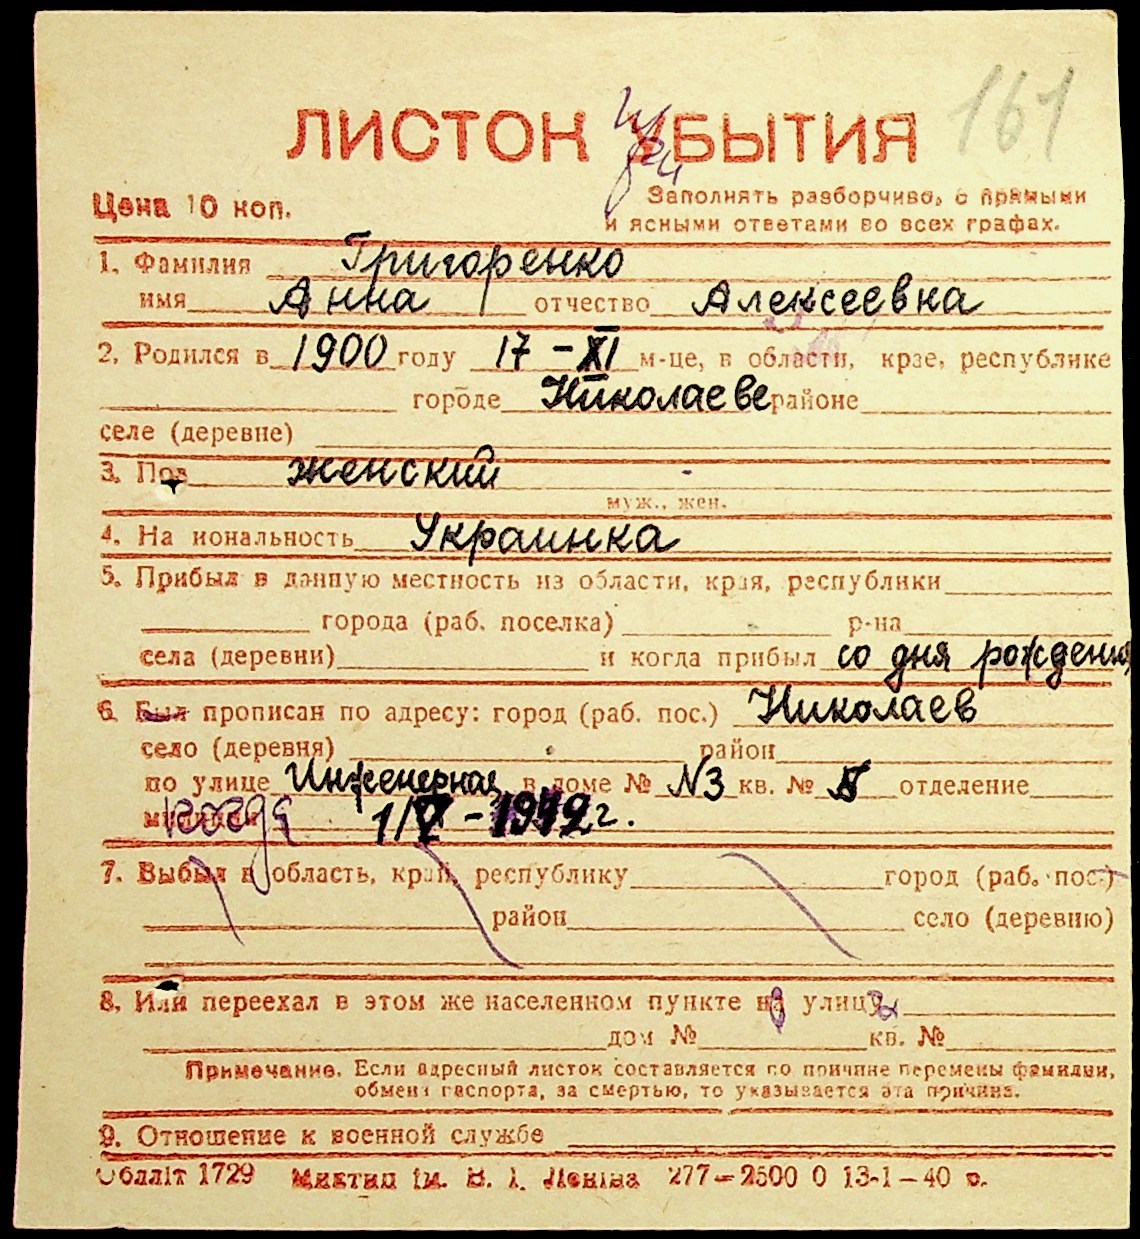 161
ЛИСТОК УБЫТИЯ
Цена 10 коп.
Заполнять разборчиво, с прямыми
и ясными ответами во всех графах.
1. Фамилия Григоренко
имя Анна отчество Алексеевна
2. Родился в 1900 году 17 - XI м-це, в области, крае, республике
городе Николаеве районе
селе (деревне)
3. Пол женский
муж., жен.
4. На иональность Украинка
5. Прибыл в данную местность из области, края, республики
города (раб. поселка) р-на
села (деревни) и когда прибыл со дня рождения
6. Был прописан по адресу: город (раб. пос.) Николаев
село (деревня) район
по улице Инженерная в доме № N3 кв. № отделение
милиции когда 1/V - 1942 г.
7. Выбыл в область, край, республику город (раб. пос.)
район село (деревню)
8. Или переехал в этом же населенном пункте на улицу
дом № кв. №
Примечание. Если адресный листок составляется по причине перемены фамилии,
обмена паспорта, за смертью, то указывается эта причина.
9. Отношение к военной службе
Обллiт 1729 Миктип iм. В. I. Ленiна 277—2500 0 13-1—40 р.